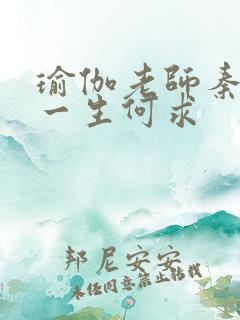 瑜伽老師秦
一生何求
邦尼安安
未经同意禁止转载